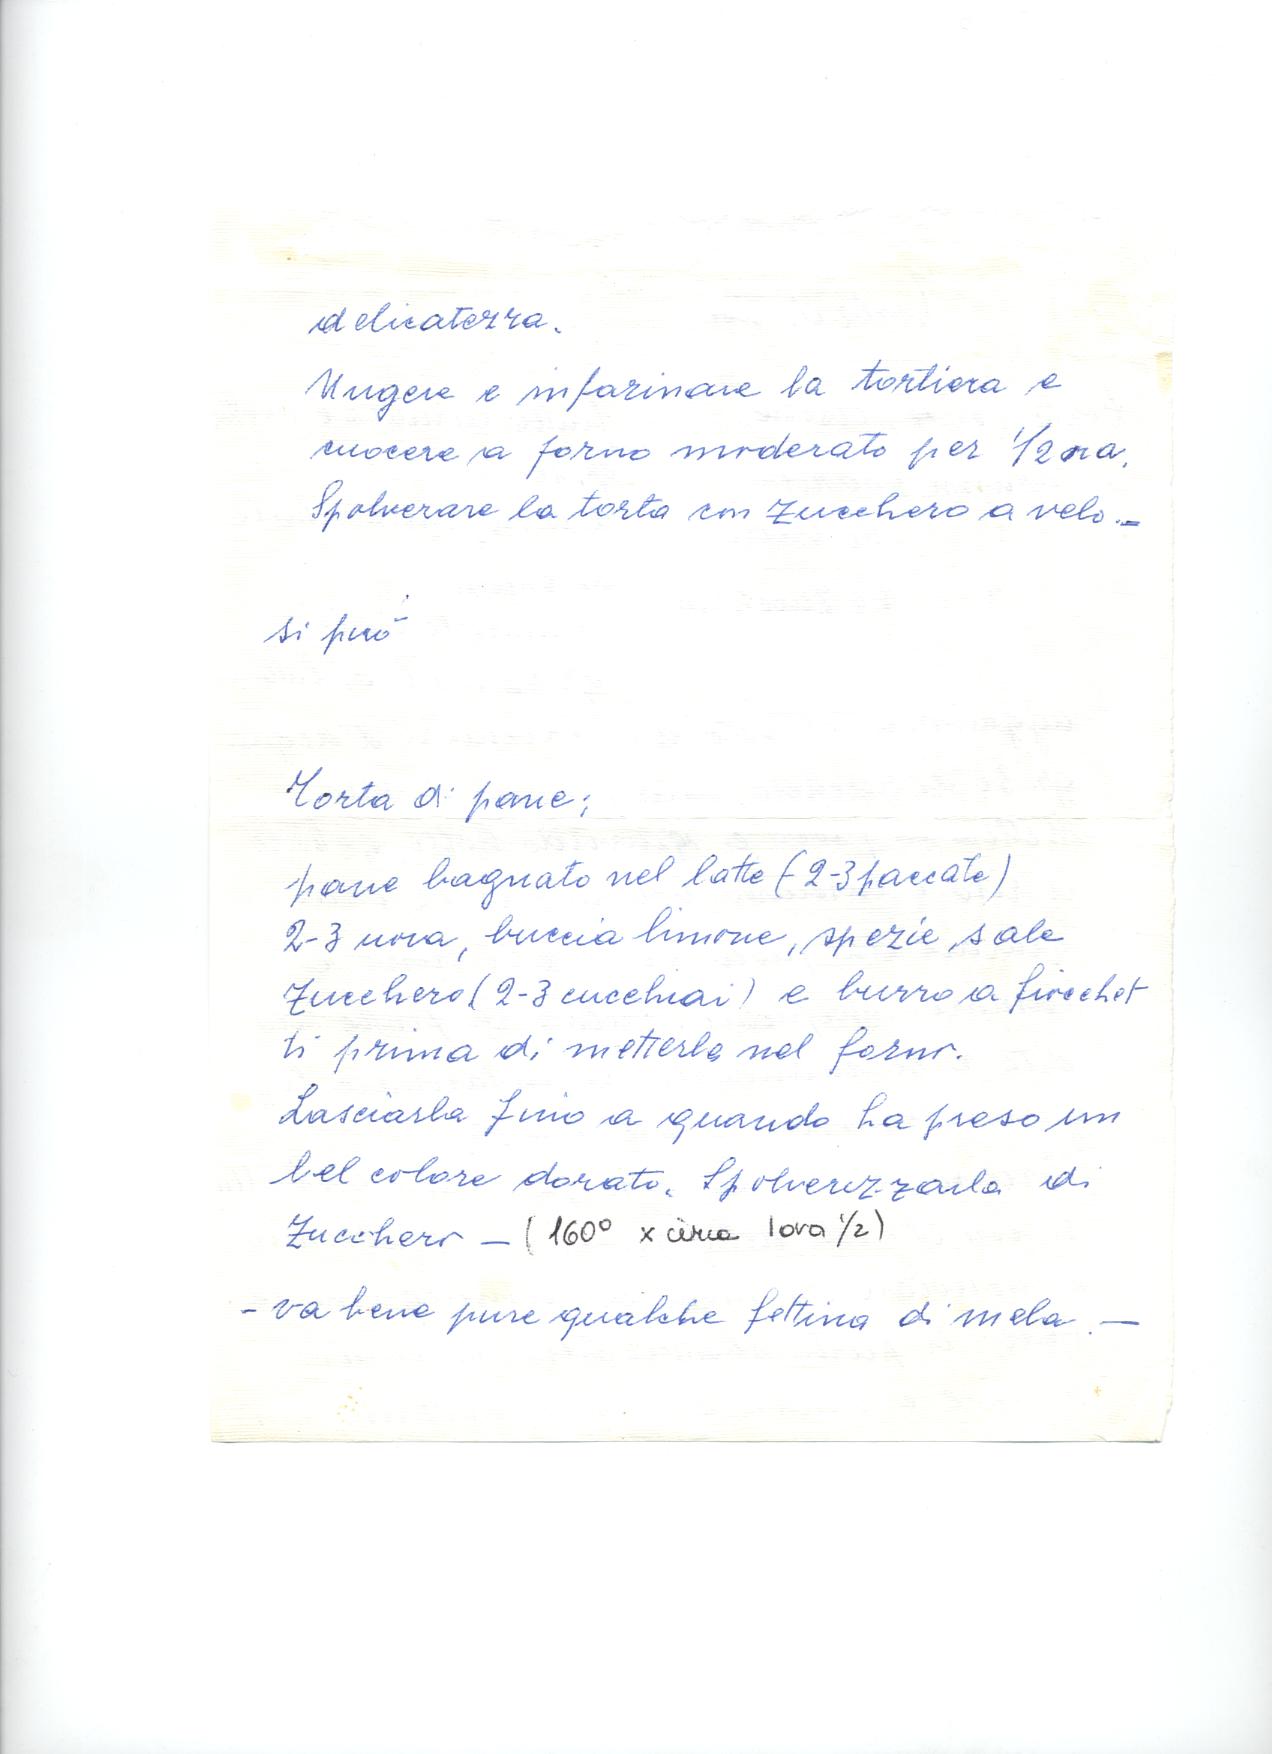 delicatezza.
Ungere e infarinare la tortiera e
cuocere a forno moderato per 1/2 ora.
Spolverare la torta con zucchero a velo.-
si può
Torta di pane;
pane bagnato nel latte (2-3 paccate)
2-3 uova, buccia limone, spezie, sale
zucchero (2-3 cucchiai) e burro a fiocchet
ti prima di metterla nel forno.
Lasciarla fino a quando ha preso un
bel colore dorato. Spolverizzarla di
zucchero - (160° x circa 1 ora 1/2)
- va bene pure qualche fettina di mela. -